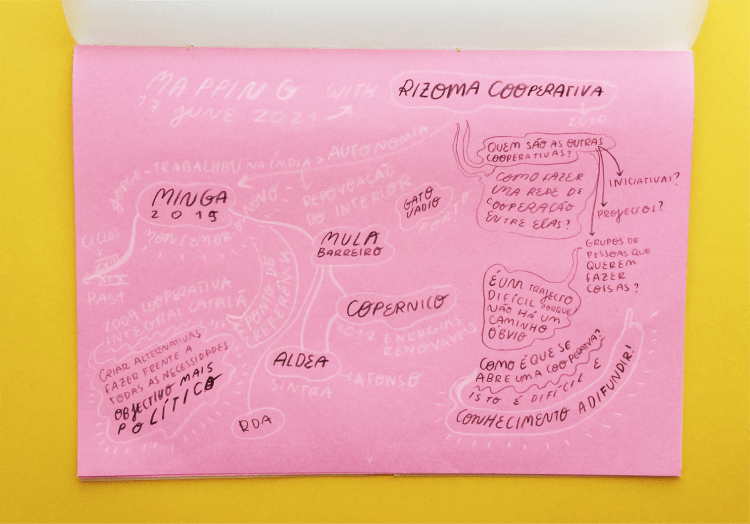 MAPPING WITH RIZOMA COOPERATIVA
17 JUNE 2021
2020
AUTONOMIA
JORGE - TRABALHOU NA ÍNDIA
MINGA
2015
MONTEMOR-O-NOVO
REPOVOAÇÃO
DO INTERIOR
GATO
VADIO
PORTO
MULA
BARREIRO
CICLOS
XVIII
XIX
PAST
PONTO DE
REFERÊNCIA
2009 COOPERATIVA
INTEGRAL CATALÃ
CRIAR ALTERNATIVAS
FAZER FRENTE A
TODAS AS NECESSIDADES
OBJECTIVO MAIS
POLÍTICO
COPERNICO
2012 ENERGIAS
RENOVÁVEIS
ALDEA
SINTRA
AFONSO
RDA
QUEM SÃO AS OUTRAS
COOPERATIVAS?
COMO FAZER
UMA REDE DE
COOPERAÇÃO
ENTRE ELAS?
INICIATIVAS?
PROJECTOS?
GRUPOS DE
PESSOAS QUE
QUEREM
FAZER
COISAS?
É UM TRAJECTO
DIFÍCIL PORQUE
NÃO HÁ UM
CAMINHO
ÓBVIO
COMO É QUE SE
ABRE UMA COOPERATIVA?
ISTO É DIFÍCIL E
CONHECIMENTO A DIFUNDIR!